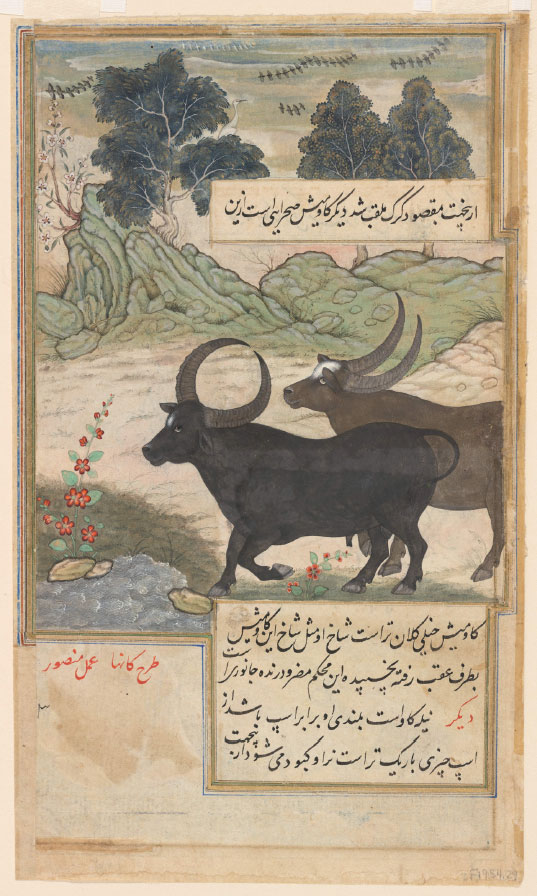 ازینجهت بمقصود کرک ملقب شد دیگر گاومیش صحرایی است ازین
گاومیش خیلی کلان تراست شاخ او مثل شاخ این گاومیش
بطرف عقب رفته بچسپیده این محکم مضر و درنده جانوریراست
دیگر نیله گاو است بلندی او برابر اسپ باشد از
اسپ چیزی باریک تر است نر او کبود می شود از ینجهت
طرح کانها عمل منصور
۳
F1954.29